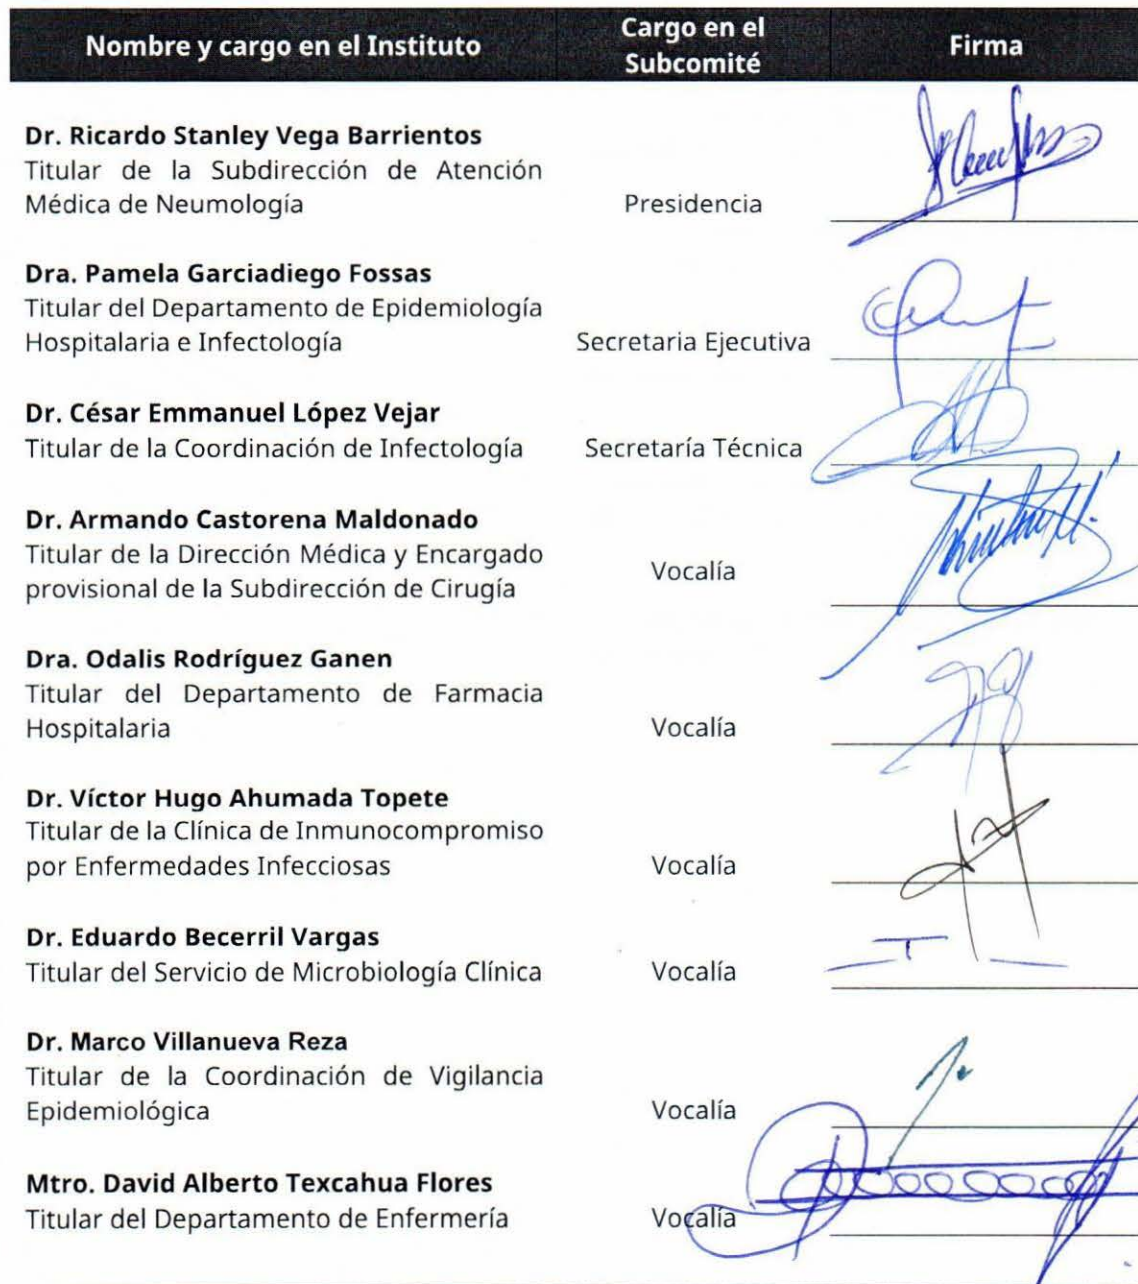 Nombre y cargo en el Instituto
Cargo en el
Subcomité
Firma
Dr. Ricardo Stanley Vega Barrientos
Titular de la Subdirección de Atención
Médica de Neumología
Presidencia
Dra. Pamela Garciadiego Fossas
Titular del Departamento de Epidemiología
Hospitalaria e Infectología
Secretaria Ejecutiva
Dr. César Emmanuel López Vejar
Titular de la Coordinación de Infectología
Secretaría Técnica
Dr. Armando Castorena Maldonado
Titular de la Dirección Médica y Encargado
provisional de la Subdirección de Cirugía
Vocalía
Dra. Odalis Rodríguez Ganen
Titular del Departamento de Farmacia
Hospitalaria
Vocalía
Dr. Víctor Hugo Ahumada Topete
Titular de la Clínica de Inmunocompromiso
por Enfermedades Infecciosas
Vocalía
Dr. Eduardo Becerril Vargas
Titular del Servicio de Microbiología Clínica
Vocalía
Dr. Marco Villanueva Reza
Titular de la Coordinación de Vigilancia
Epidemiológica
Vocalía
Mtro. David Alberto Texcahua Flores
Titular del Departamento de Enfermería
Vocalía